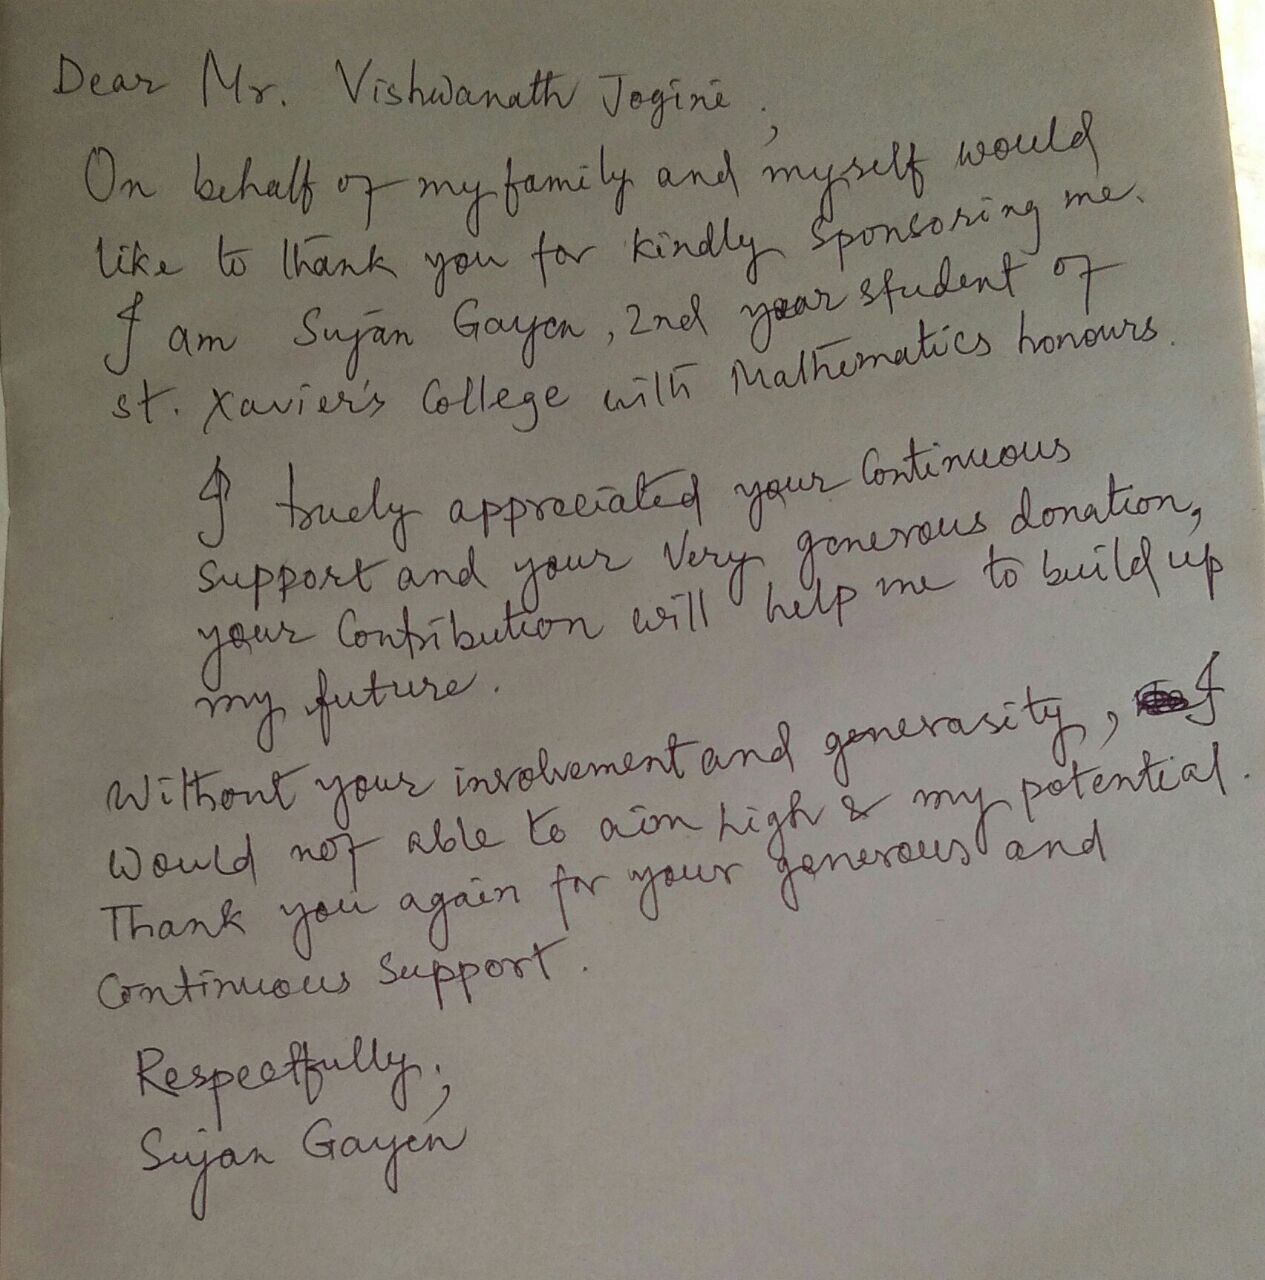 Dear Mr. Vishwanath Jogini,
On behalf of my family and myself would
like to thank you for kindly sponsoring me.
I am Sujan Gayen, 2nd year student of
st. Xavier's College with Mathematics honours.
I truely appreciated your Continuous
support and your very generous donation,
your Contribution will help me to build up
my future.
Without your involvement and generasity, I
would not able to aim high & my potential.
Thank you again for your generous and
Continuous Support.
Respectfully,
Sujan Gayen